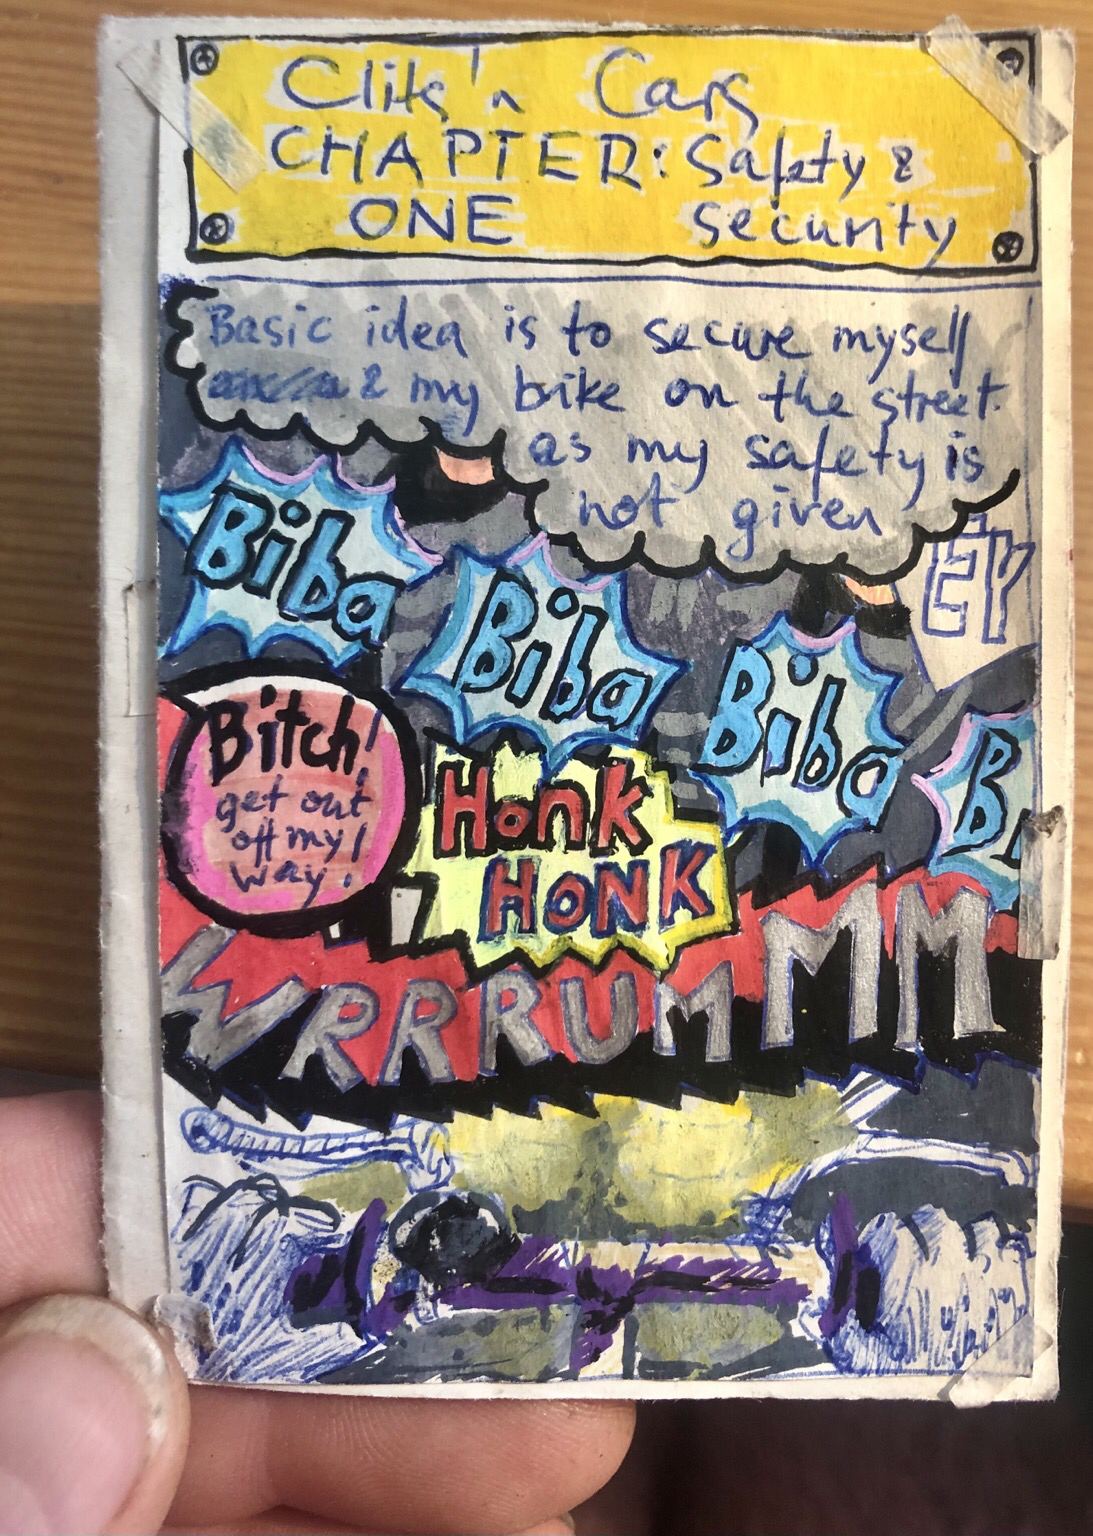 Clits 'n Cars
CHAPTER: Safety &
ONE Security
Basic idea is to secure myself
& my bike on the street.
as my safety is
not given
EY
Biba
Biba
Biba
Bi
Bitch!
get out
off my
way!
Honk
HONK
WRRRUMMM